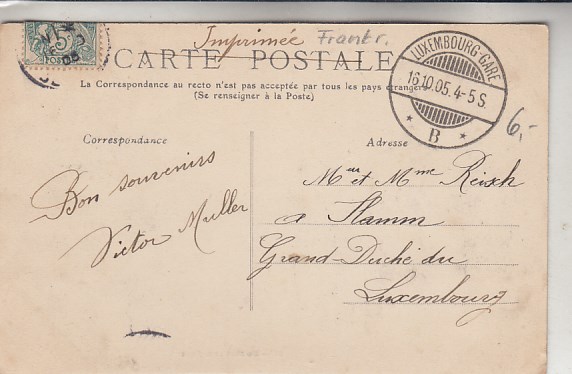 Imprimée Frankr.
CARTE POSTALE
La Correspondance au recto n'est pas acceptée par tous les pays étrangers
(Se renseigner à la Poste)
LUXEMBOURG-GARE
16.10.05.4-5 S.
* B *
6,-
Correspondance
Adresse
Bon souvenirs
Victor Muller
Mr et Mme Reisch
a Hamm
Grand-Duché du
Luxembourg
5
05